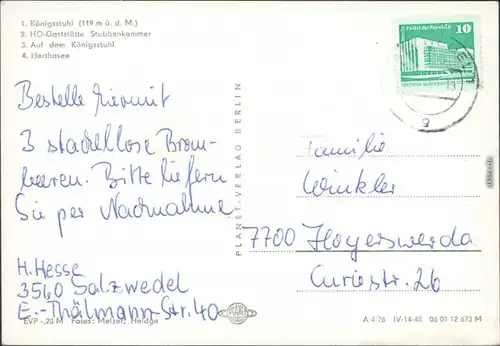 1. Königsstuhl (119 m ü. d. M.)
2. HO-Gaststätte Stubbenkammer
3. Auf dem Königsstuhl
4. Herthasee
Bestelle hiermit
3 stachellose Brom-
beeren. Bitte liefern
Sie per Nachnahme
H. Hesse
3560 Salzwedel
E.-Thälmann-Str. 40
EVP -,20 M Fotos: Melzer, Heldge
PLANET-VERLAG BERLIN
10
Familie
Winkler
7700 Hoyerswerda
Curiestr. 26
A 4/76 IV-14-45 06 01 12 673 M